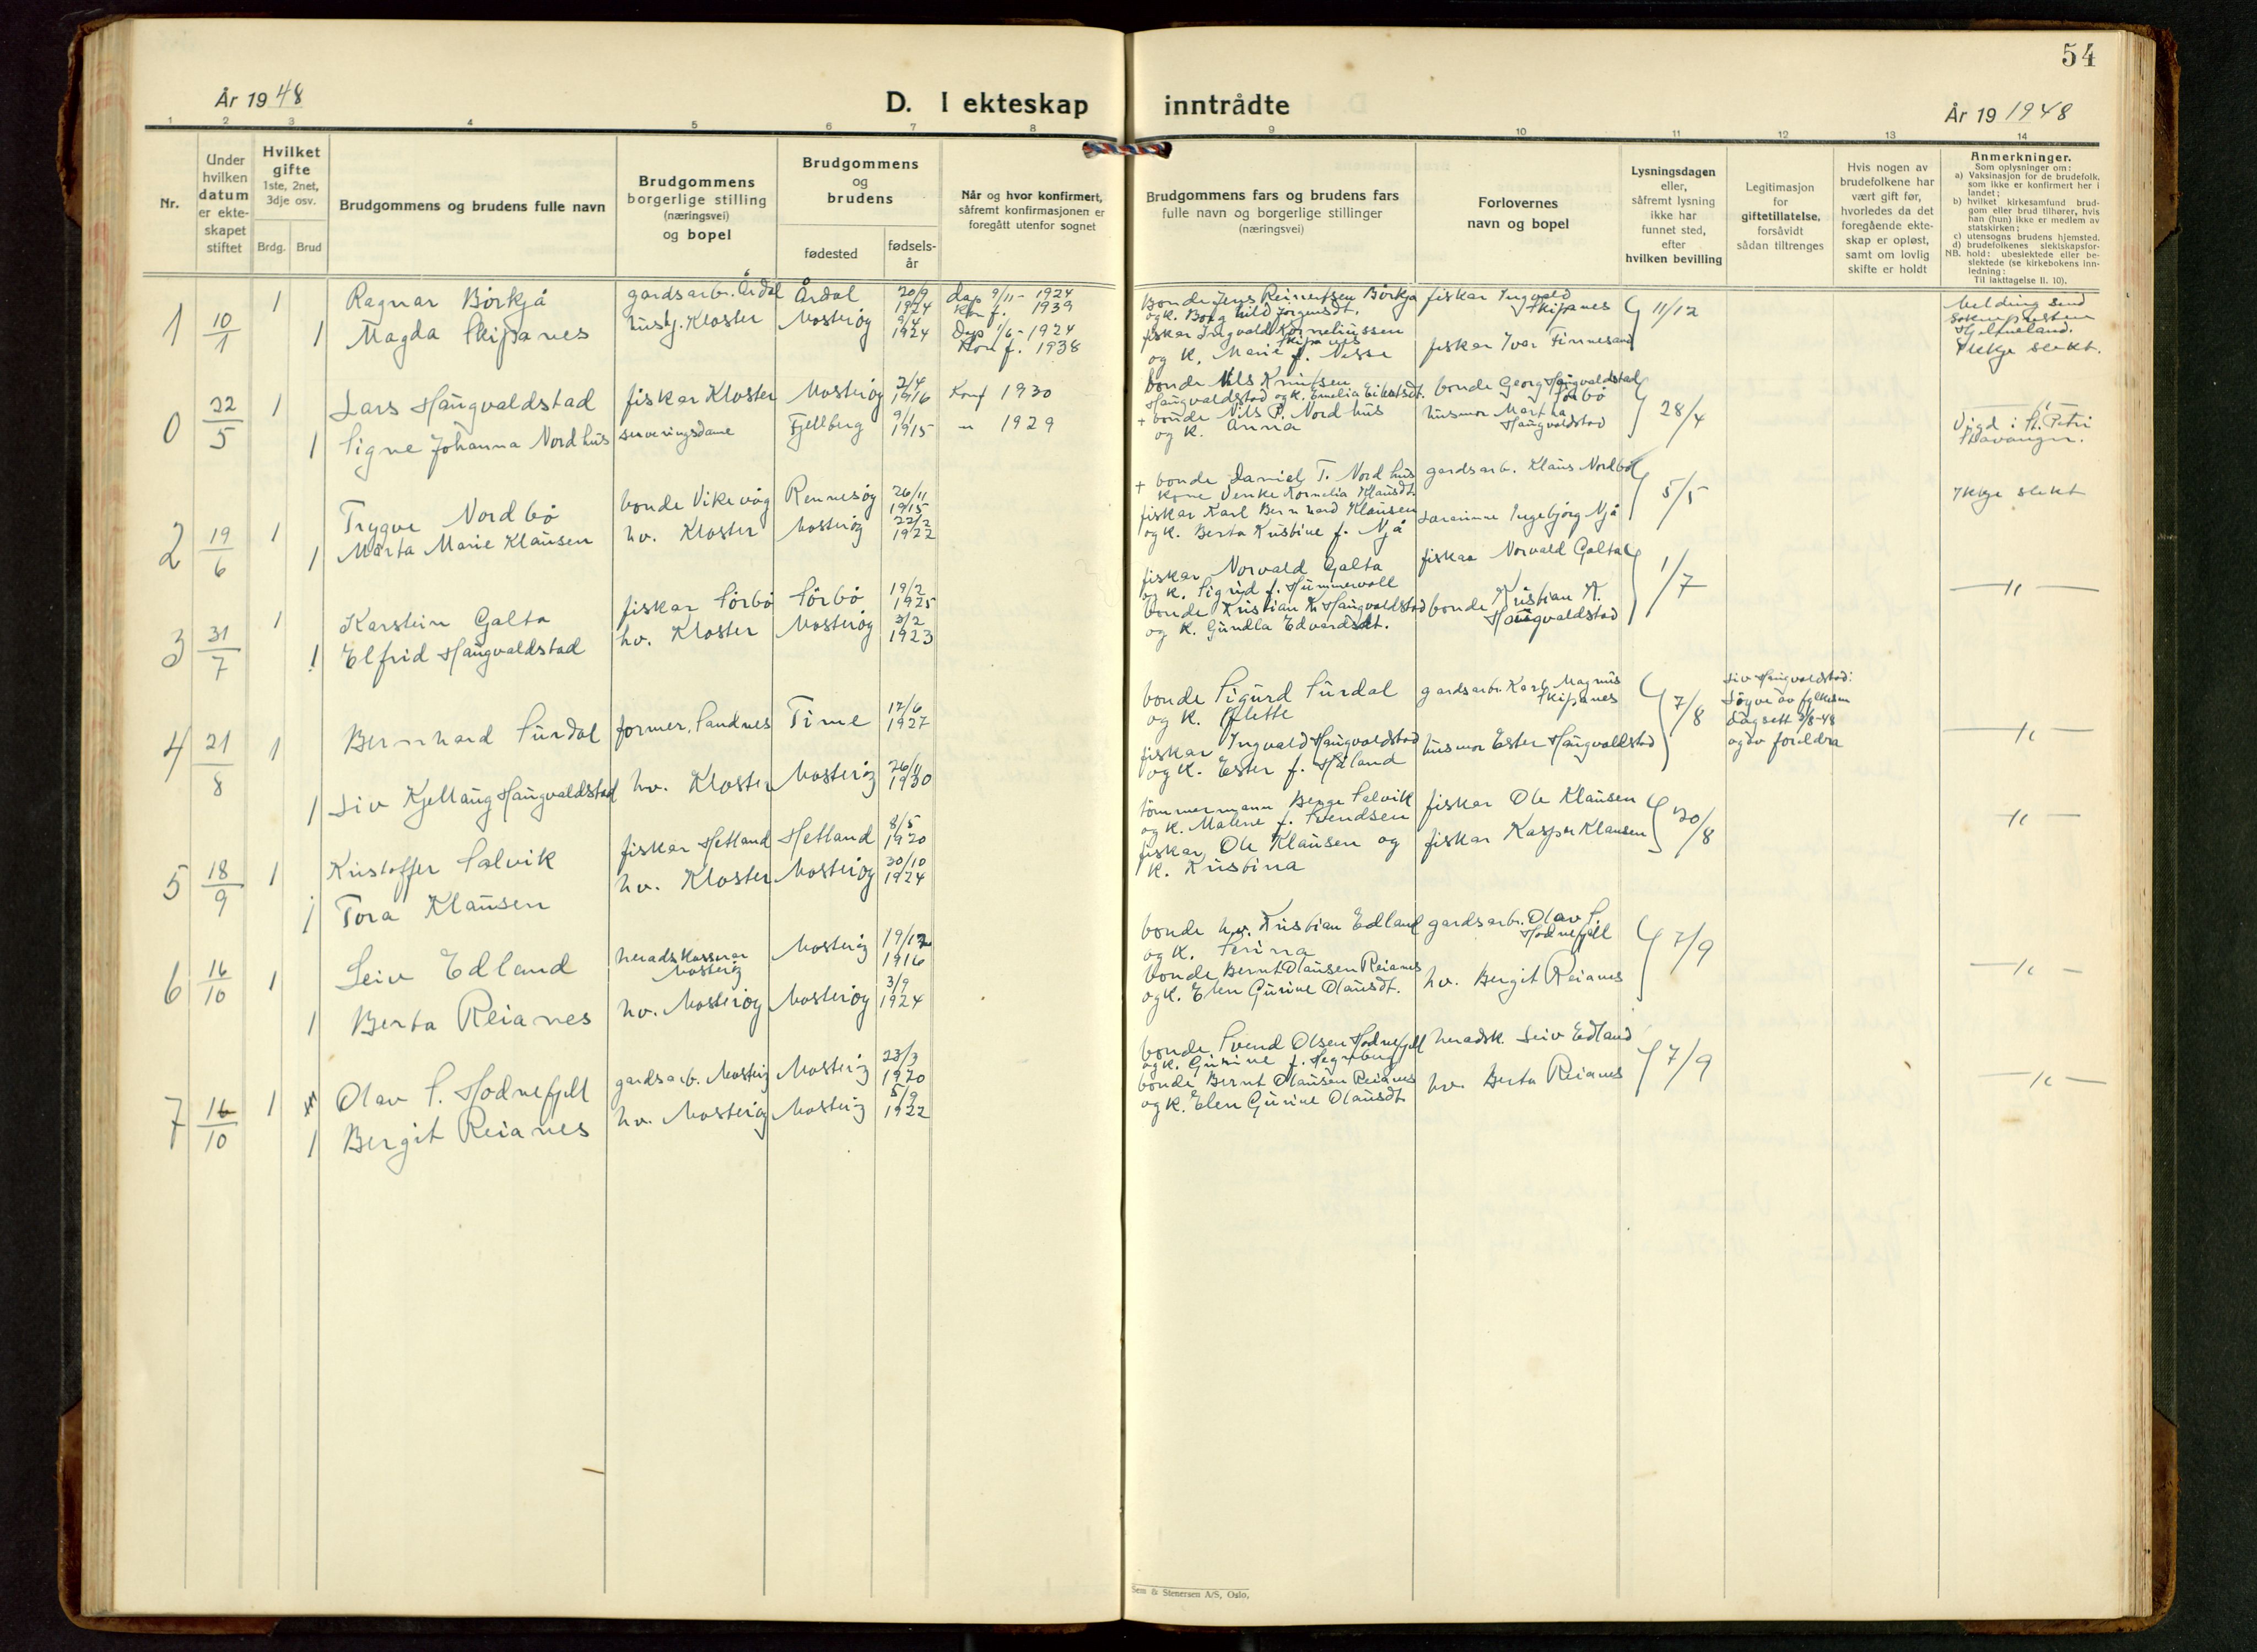 54
År 19 48
D. I ekteskap inntrådte
År 19 1948
1 2 3 4 5 6 7 8 9 10 11 12 13 14
Nr.
Under hvilken datum er ekte-skapet stiftet
Hvilket gifte 1ste, 2net, 3dje osv.
Brdg. Brud
Brudgommens og brudens fulle navn
Brudgommens borgerlige stilling (næringsvei) og bopel
Brudgommens og brudens
fødested
fødsels-år
Når og hvor konfirmert, såfremt konfirmasjonen er foregått utenfor sognet
Brudgommens fars og brudens fars fulle navn og borgerlige stillinger (næringsvei)
Forlovernes navn og bopel
Lysningsdagen eller, såfremt lysning ikke har funnet sted, efter hvilken bevilling
Legitimasjon for giftetillatelse, forsåvidt sådan tiltrenges
Hvis nogen av brudefolkene har vært gift før, hvorledes da det foregående ekte-skap er opløst, samt om lovlig skifte er holdt
Anmerkninger.
Som oplysninger om:
a) Vaksinasjon for de brudefolk. som ikke er konfirmert her i landet;
b) hvilket kirkesamfund brud-gom eller brud tilhører, hvis han (hun) ikke er medlem av statskirken;
c) utensogns brudens hjemsted.
d) brudefolkenes slektskapsfor-hold: ubeslektede eller be-slektede (se kirkebokens inn-ledning:
NB.
Til iakttagelse II. 10).
1 10/1 1 Ragnar Börkjå gardsarb. Årdal Årdal 20/9 1924 dap 9/11 - 1924 Kon f. 1939
1 Magda Skipanes hushj. Kloster Mosterøy 9/4 1924 Dap 1/6 - 1924 Kon f. 1938
Bonde Jens Reinertsen Börkja og k. Borghild Jörgensdt. fiskar Ingvald Skipanes 11/12
fiskar Ingvald Korneliussen Skipanes og K. Marie f. Nesse fiskar Ivar Finnesand
Melding send soknepresten Hjelmeland. Ikkje slekt.
0 22/5 1 Lars Haugvaldstad fiskar Kloster Mosterøy 2/4 1916 Konf 1930
1 Signe Johanna Nordhus serveringsdame Fjellberg 9/1 1915 " 1929
bonde Nils Knutsen Haugvaldstad og k. Emelia Eilertsdt. bonde Georg Haugvaldstad Sörbö 28/4
+ bonde Nils P. Nordhus og K. Anna husmor Martha Haugvaldstad
Vigd i St. Petri Stavanger.
2 19/6 1 Trygve Nordbö bonde Vikevåg Rennesøy 26/11 1915
1 Marta Marie Klausen hv. Kloster Mosterøy 22/2 1922
+ bonde Daniel T. Nordhus kone Venke Kornelia Klausdt. gardsarb. Klaus Nordbö 5/5
fiskar Karl Bernhard Klausen og K. Berta Kristine f. Njå Lærarinne Ingebjørg Njå
Ikkje slekt
3 31/7 1 Karstein Galta fiskar Sörbö Sörbö 19/2 1925
1 Elfrid Haugvaldstad hv. Kloster Mosterøy 3/2 1923
fiskar Norvald Galta og K. Sigrid f. Hummervoll fiskar Norvald Galta 1/7
bonde Kristian K. Haugvaldstad og K. Gundla Edvardsdt. bonde Kristian K. Haugvaldstad
— " —
4 21/8 1 Bernhard Surdal former, Sandnes Time 17/6 1927
1 Liv Kjellaug Haugvaldstad hv. Kloster Mosterøy 26/11 1930
bonde Sigurd Surdal og K. Jlette gardsarb. Karl Magnus Skipanes 7/8
fiskar Ingvald Haugvaldstad og K. Ester f. Håland husmor Ester Haugvaldstad
Liv Haugvaldstad: Löyve av fylkesm dagsett 2/8-48 og av foreldra
— " —
5 18/9 1 Kristoffer Salvik fiskar Hetland Hetland 8/5 1920
1 Tora Klausen hv. Kloster Mosterøy 30/10 1924
tömmermann Berge Salvik og K. Malene f. Svendsen fiskar Ole Klausen 20/8
fiskar Ole Klausen og K. Kristina fiskar Kasper Klausen
— " —
6 16/10 1 Leiv Edland heradskasserar Mosterøy Mosterøy 19/12 1916
1 Berta Reianes hv. Mosterøy Mosterøy 3/9 1924
bonde hv. Kristian Edland og K. Serina gardsarb. Olav S. Hodnefjell 7/9
bonde Bernt Olausen Reianes og K. Elen Gurine Olausdt. hv. Bergit Reianes
— " —
7 16/10 1 Olav S. Hodnefjell gardsarb. Mosterøy Mosterøy 23/3 1920
1 Bergit Reianes hv. Mosterøy Mosterøy 5/9 1922
bonde Svend Olsen Hodnefjell og K. Gurine f. Hegreberg heradsk. Leiv Edland 7/9
bonde Bernt Olausen Reianes og K. Elen Gurine Olausdt. hv. Berta Reianes
— " —
Sem & Stenersen A/S, Oslo.